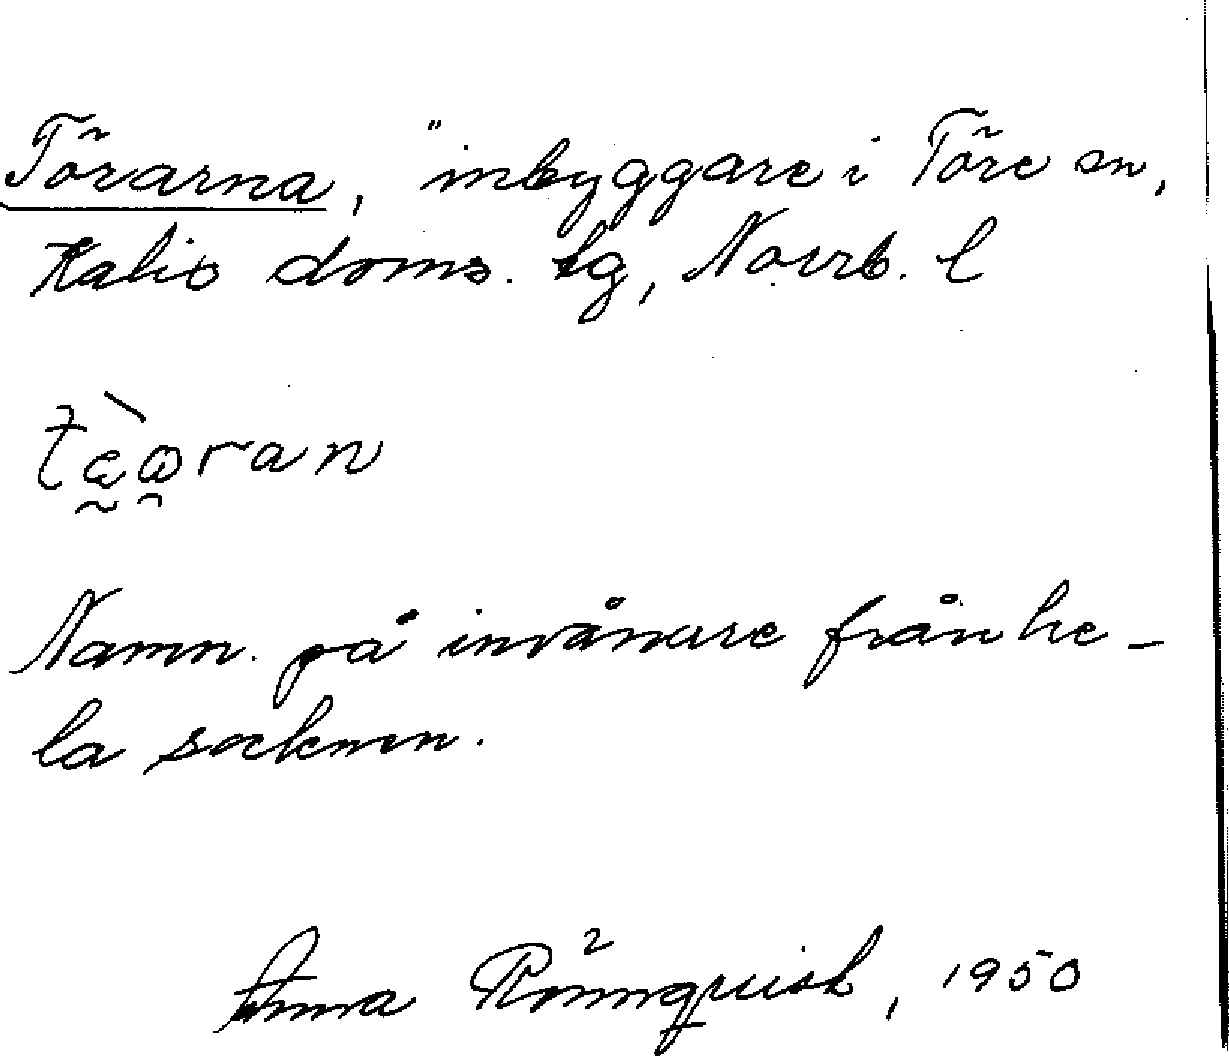 Törarna, "inbyggare i Töre sn,
Kalix doms. lg, Norrb. l
tæ̀ωran
Namn. på invånare från he-
la socknen.
Anna Rönnquist, 1950